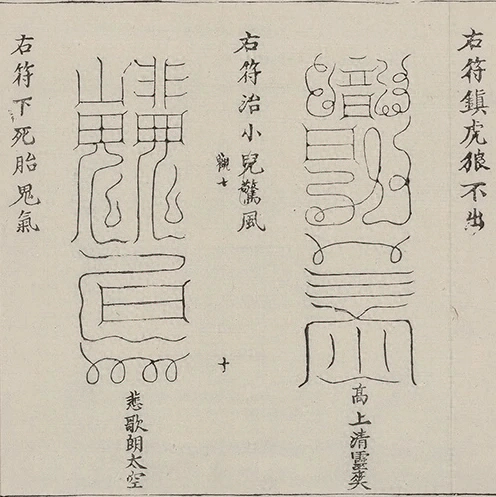 右符鎮虎狼不出
高上清靈爽
右符治小兒驚風
觀七
十
悲歌朗太空
右符下死胎鬼氣